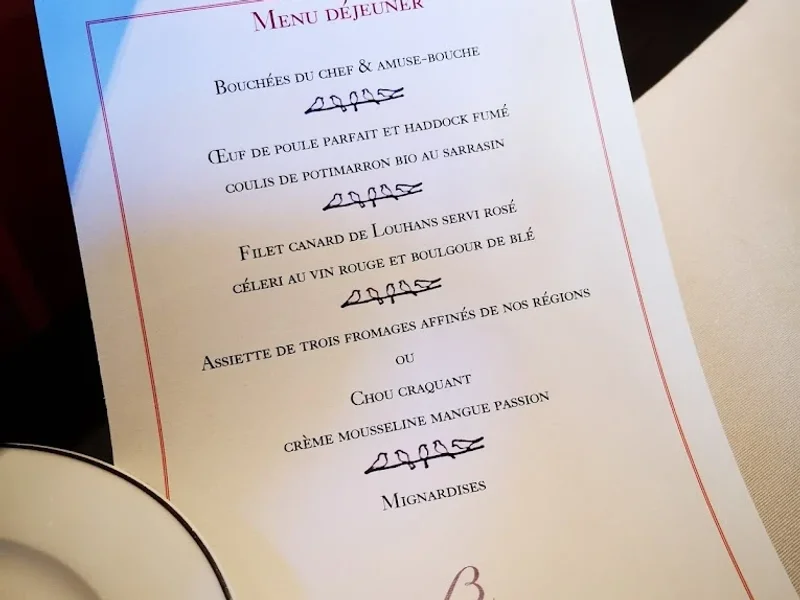 Menu déjeuner
Bouchées du chef & amuse-bouche
Œuf de poule parfait et haddock fumé
coulis de potimarron bio au sarrasin
Filet canard de Louhans servi rosé
céleri au vin rouge et boulgour de blé
Assiette de trois fromages affinés de nos régions
ou
Chou craquant
crème mousseline mangue passion
Mignardises
B